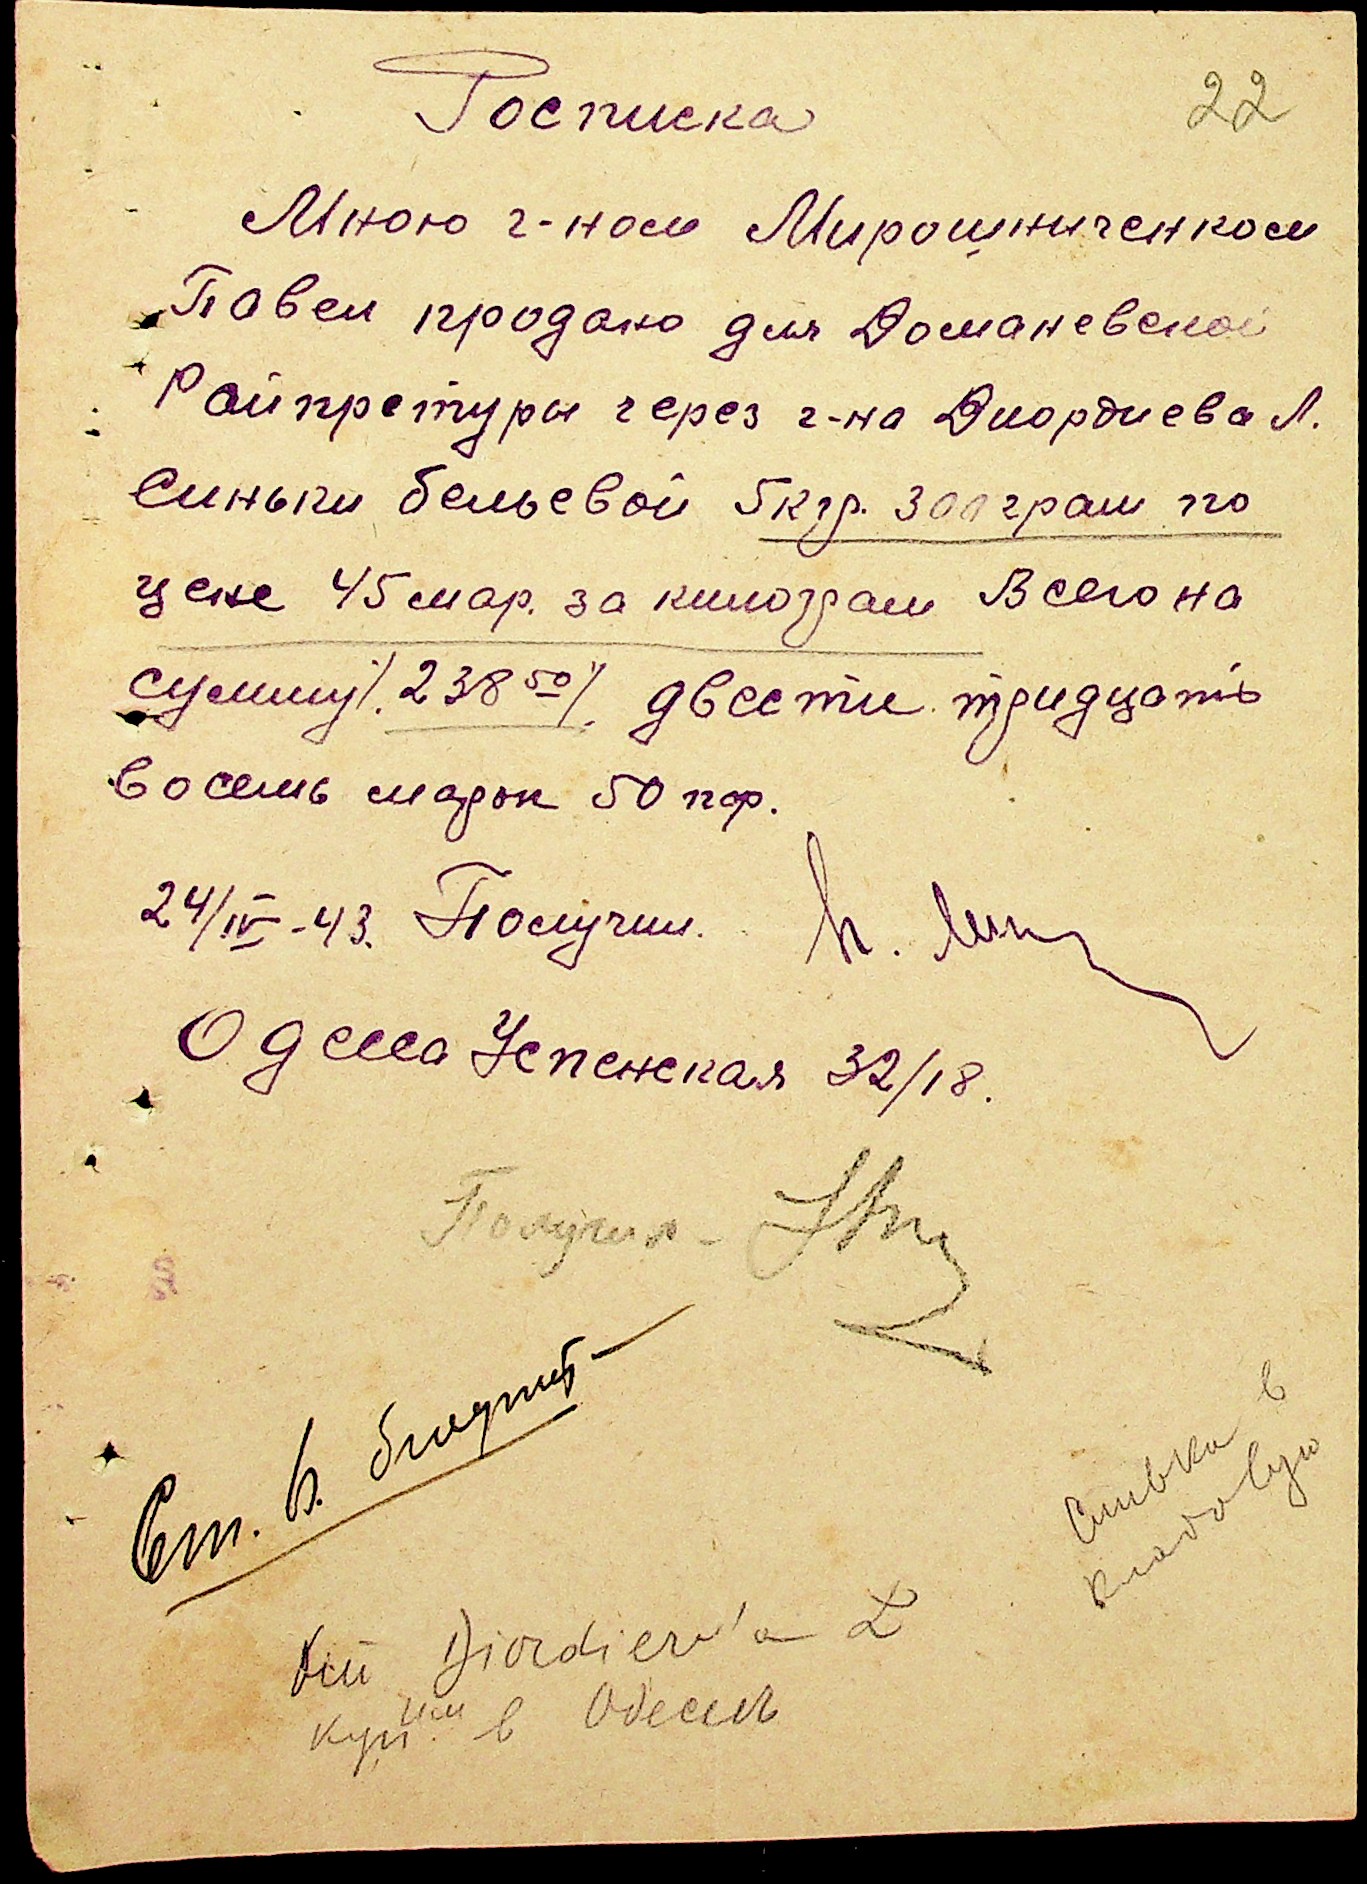 22
Росписка
Мною г-ном Мирошниченком
Павел продано для Доманевской
Райпретуры через г-на Диордиева Л.
Синьки бельевой 5 кгр. 300 грам по
цене 45 мар. за килограм Всего на
сумму /. 238 50 /. двести тридцать
восемь марок 50 пф.
24/IV-43. Получил.
Одесса Успенская 32/18.
Получил -
Ст. в.
Синька в
кладовую
Diordiev'a L
в Одессе